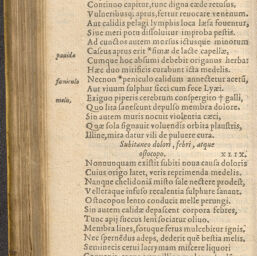 Continuo capitur, tunc digna cæde retusus,
Vulneribusq; aptus, fertur reuocare venenum.
Aut calidis pelagi lymphis loca læsa fouentur,
Siue meri potu dissoluitur improba pestis.
Ad cunctos autem morsus ictusque minorum
Caseus aptus erit * fimæ de lacte capellæ,
pauida
Cumque hoc absumi debebit origanus herba:
Hæc duo mirificis curabunt icta medelis.
Necnon * peniculo calidum annectetur acetũ,
fœniculo
Aut viuum sulphur sicci cum fece Lyæi.
Exiguo piperis cerebrum conspergito † galli,
melio,
Quo lita sanescunt depulso membra dolore.
Sin autem muris nocuit violentia cæci,
Quæ sola signauit voluendis orbita plaustris,
Illine, mira datur vili de puluere cura.
Subitaneo dolori, febri, atque
ofocopo. XLIX.
Nonnunquam existit subiti noua causa doloris
Cuius origo latet, veris reprimenda medelis.
Nanque chelidonia misto sale nectere prodest,
Velleraque infuso recalentia sulphure sanant.
Ostocopon lento conducit melle perungi.
Sin autem calidæ depascent corpora febres,
Tunc apij succus leni sociatur oliuo.
Membra lines, fotuque ferus mulcebitur ignis.
Nec spernẽdus adeps, dederit quē bestia melis.
Semineris cerui lacrymam miscere liquori